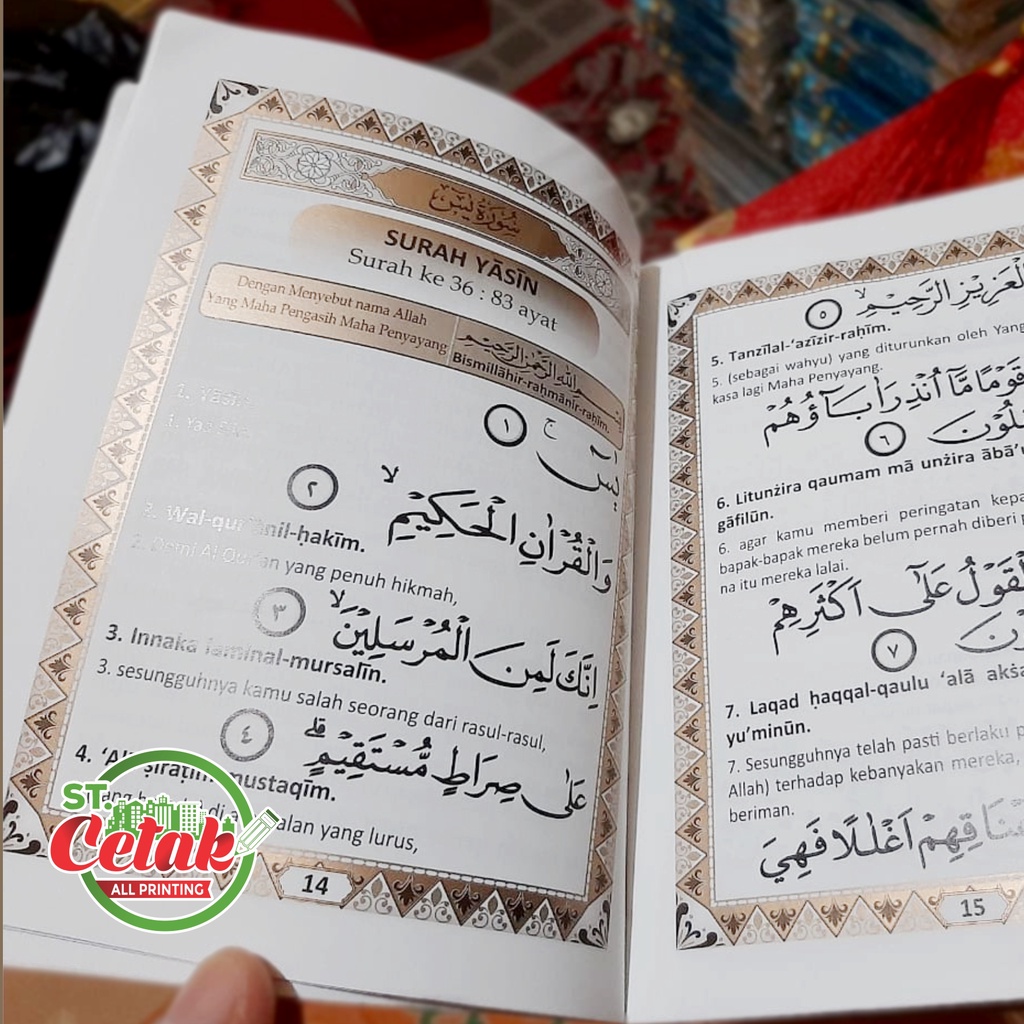 سُورَةُ يٰسۤ
SURAH YĀSĪN
Surah ke 36 : 83 ayat
Dengan Menyebut nama Allah
Yang Maha Pengasih Maha Penyayang
بِسْمِ اللّٰهِ الرَّحْمٰنِ الرَّحِيْمِ
Bismillāhir-raḥmānir-raḥīm.
يٰسۤ ۚ ١
1. Yāsīn
1. Yaa Siin
وَالْقُرْاٰنِ الْحَكِيْمِۙ ٢
2. Wal-qur'ānil-ḥakīm.
2. Demi Al Qur'an yang penuh hikmah,
اِنَّكَ لَمِنَ الْمُرْسَلِيْنَۙ ٣
3. Innaka laminal-mursalīn.
3. sesungguhnya kamu salah seorang dari rasul-rasul,
عَلٰى صِرَاطٍ مُّسْتَقِيْمٍۗ ٤
4. ‘Alā ṣirāṭim mustaqīm.
yang lurus,
14
ST.
Cetak
ALL PRINTING
الْعَزِيْزِ الرَّحِيْمِۙ ٥
5. Tanzīlal-‘azīzir-raḥīm.
5. (sebagai wahyu) yang diturunkan oleh Yang
kasa lagi Maha Penyayang.
قَوْمًا مَّآ اُنْذِرَ اٰبَاۤؤُهُمْ
٦
6. Litunżira qaumam mā unżira ābā'u
gāfilūn.
6. agar kamu memberi peringatan kepa
bapak-bapak mereka belum pernah diberi p
na itu mereka lalai.
الْقَوْلُ عَلٰٓى اَكْثَرِهِمْ
٧
7. Laqad ḥaqqal-qaulu ‘alā akśa
yu’minūn.
7. Sesungguhnya telah pasti berlaku p
Allah) terhadap kebanyakan mereka,
beriman.
اَعْنَاقِهِمْ اَغْلٰلًا فَهِيَ
15